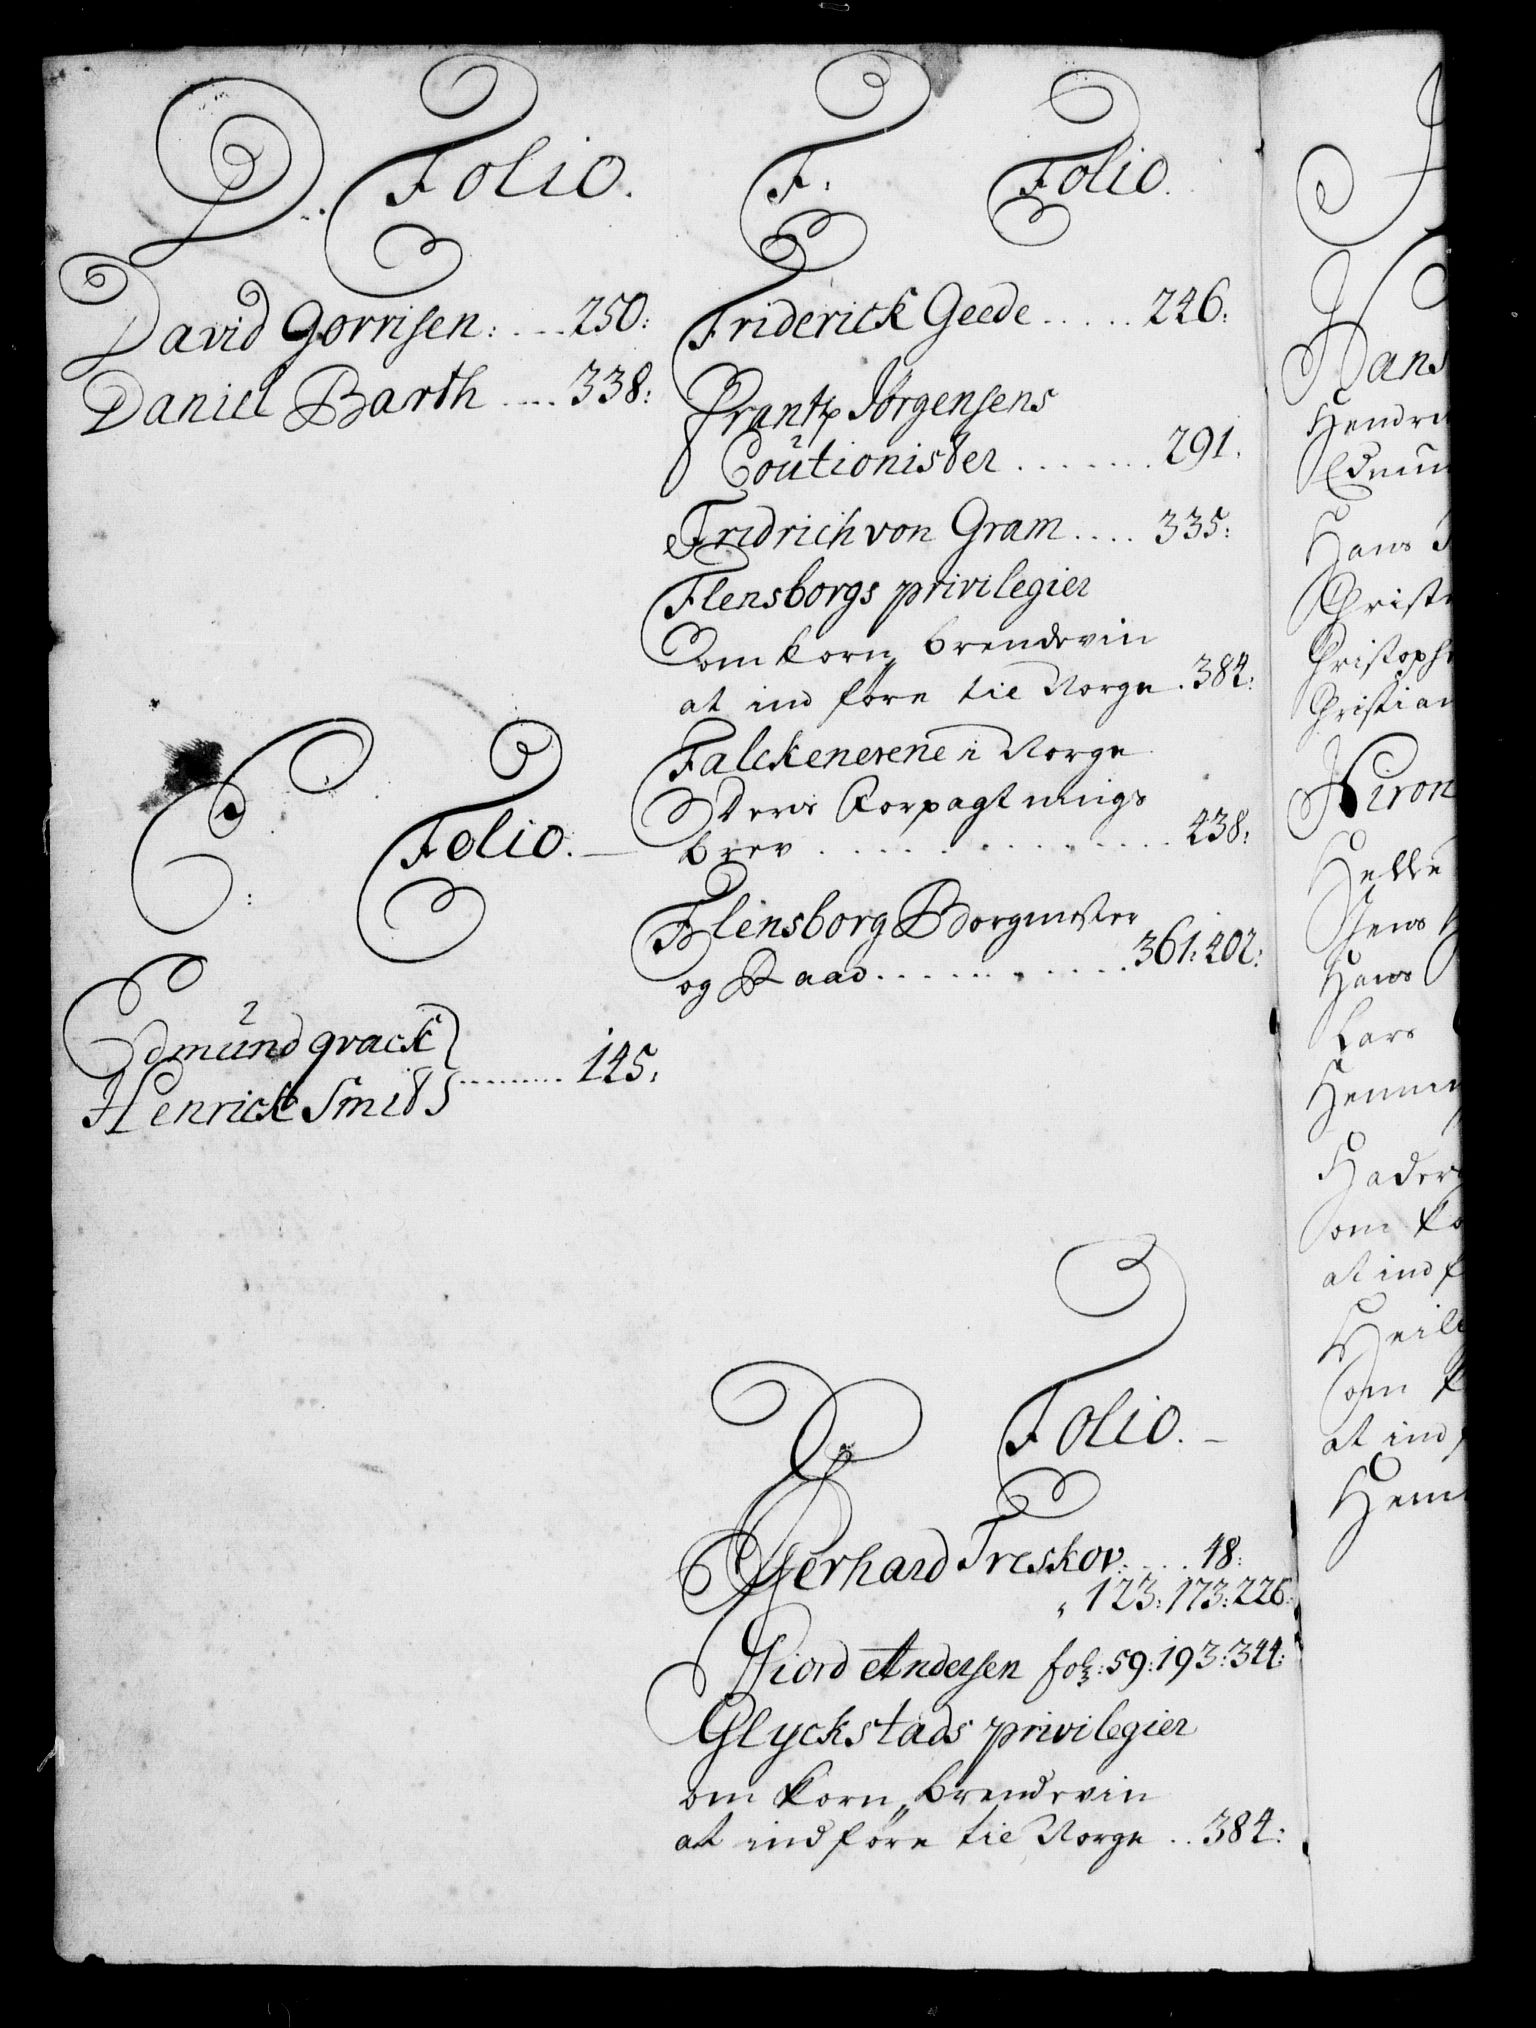 D. Folio.
David Gorrisen: .... 250:
Daniel Barth .... 338:
E: Folio.
Edmünd grack
Henrick Smidt ......... 145:
F: Folio.
Friderick Geede ..... 246:
Frantz Jørgensens
Coütionister ........ 291.
Fridrich von Gram .... 335:
Flensborgs privilegier
om korn brendevin
at ind føre til Norge . 384:
Falckenerene i Norge
Deris Forpagtnings
brev ............... 438:
Flensborg Borgmester
og Raad ........... 361: 402:
G Folio.
Gerhard Treskov ..... 48:
123: 173: 226:
Giord Andersen fol: 59: 193: 344:
Glyckstads privilegier
om korn brendevin
at indføre til Norge .. 384:
H
Hans
Hendri
Edmun
Hans
Christ
Christoph
Christian
Hiron
Helle
Jens
Hans
Lars
Hennin
Haders
om ko
at ind f
Heil
om k
at ind